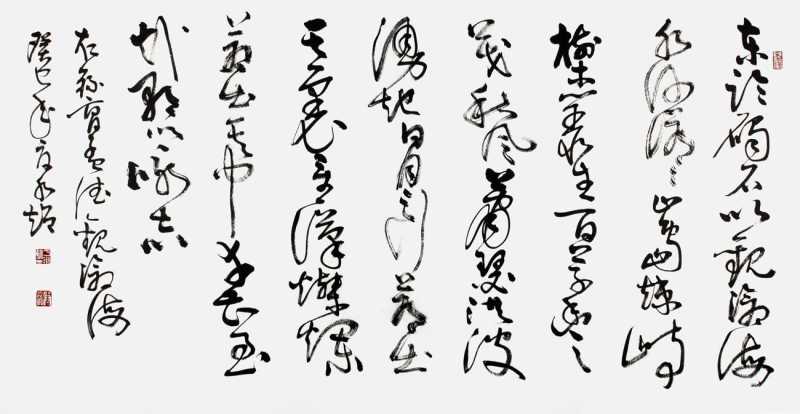 东临碣石以观沧海
水何澹澹山岛竦峙
树木丛生百草丰
茂秋风萧瑟洪波
涌起日月之行若出
其里星汉灿烂
若出其中幸甚至
哉歌以咏志
右录曹孟德观沧海
癸巳年